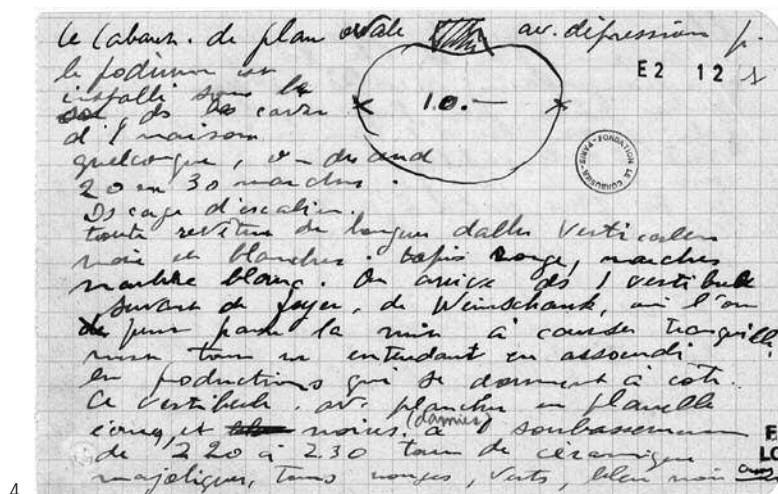 Le Cabaret. de plan ovale av. dépression p.
le podium est
E2 12 1
installé sous le
sol, ds les caves
10.—
d'1 maison
PARIS · FONDATION LE CORBUSIER
quelconque, on descend
20 ou 30 marches.
Ds cage d'escalier.
toute revêtue de longues dalles verticales
noir et blanches. tapis rouge, marches
marbre blanc. On arrive ds 1 vestibule
servant de foyer, de Weinschank, où l'on
peut passer la nuit à causer tranquille
ment tout en entendant en assourdi
les productions qui se donnent à côté.
Ce vestibule. av. plancher en planelle
et noires. (damier) à soubassement
de 220 à 230 tout de céramique
majolique, tons rouges, verts, bleu noir
E
LC
4